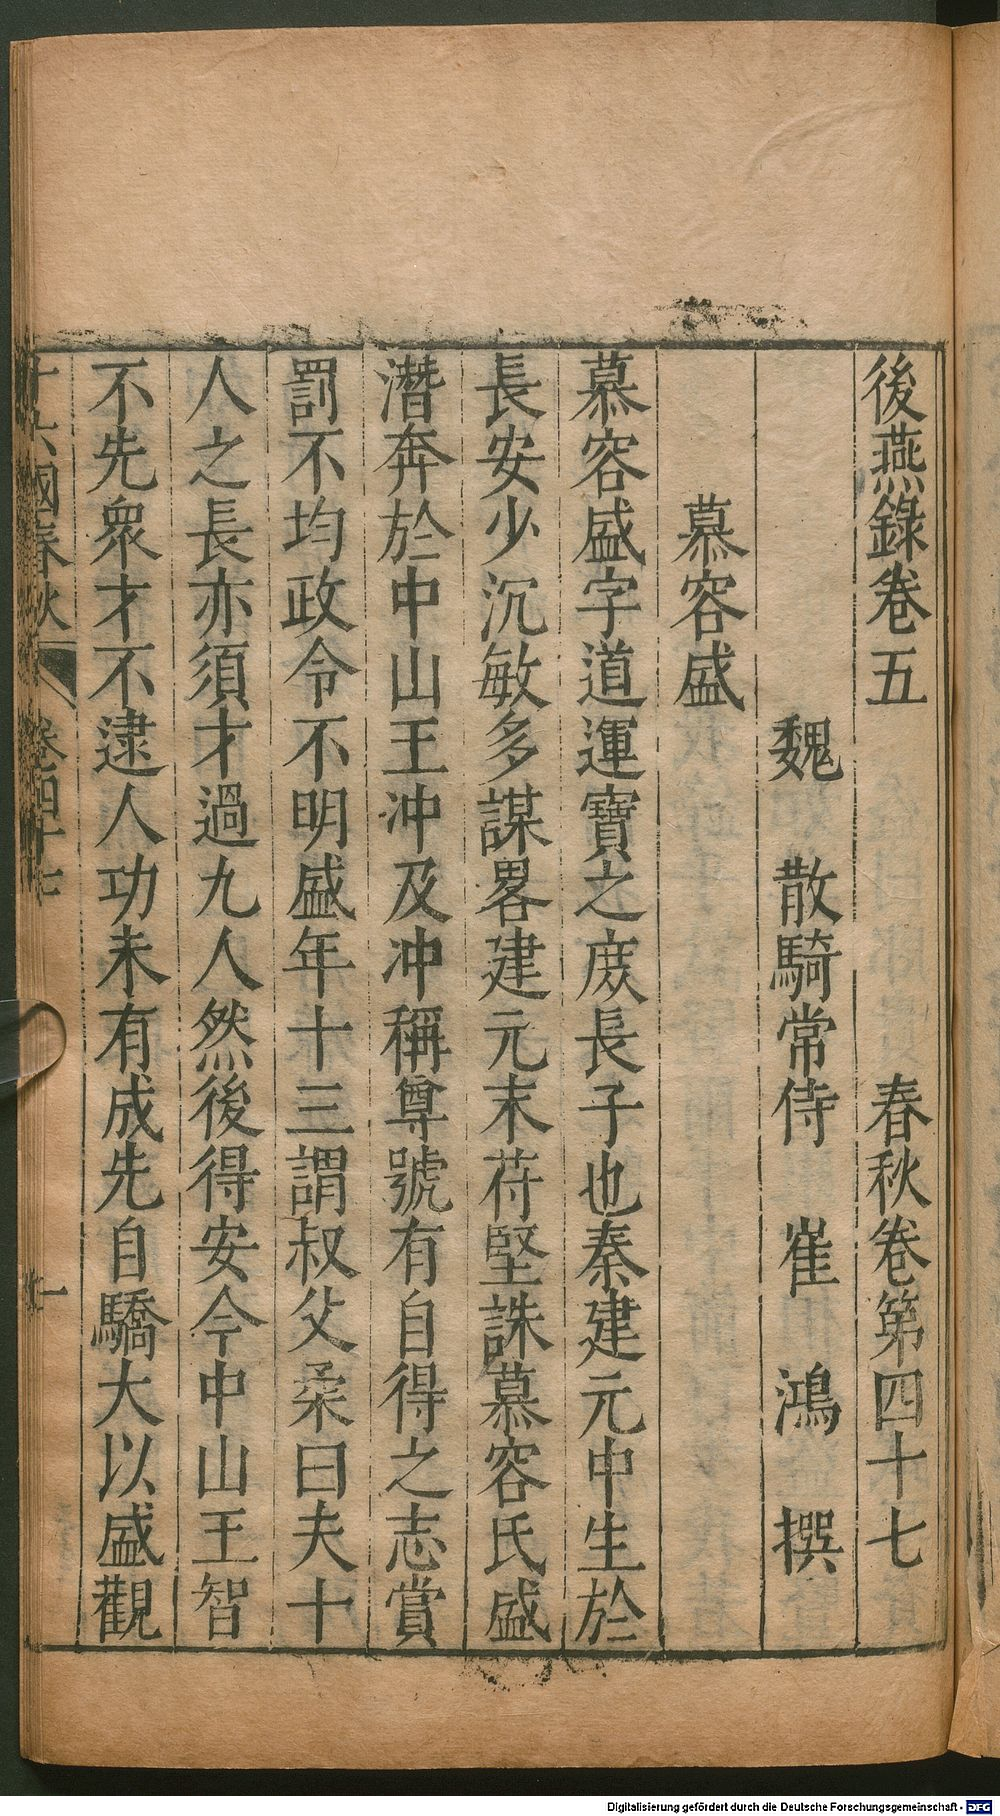 後燕錄卷五　春秋卷第四十七
魏　散騎常侍　崔　鴻　撰
慕容盛
慕容盛字道運寶之庻長子也秦建元中生於
長安少沉敏多謀畧建元末苻堅誅慕容氏盛
潛奔於中山王冲及冲稱尊號有自得之志賞
罰不均政令不明盛年十三謂叔父柔曰夫十
人之長亦須才過九人然後得安今中山王智
不先衆才不逮人功未有成先自驕大以盛觀
十六國春秋　卷四十七　一
Digitalisierung gefördert durch die Deutsche Forschungsgemeinschaft - DFG